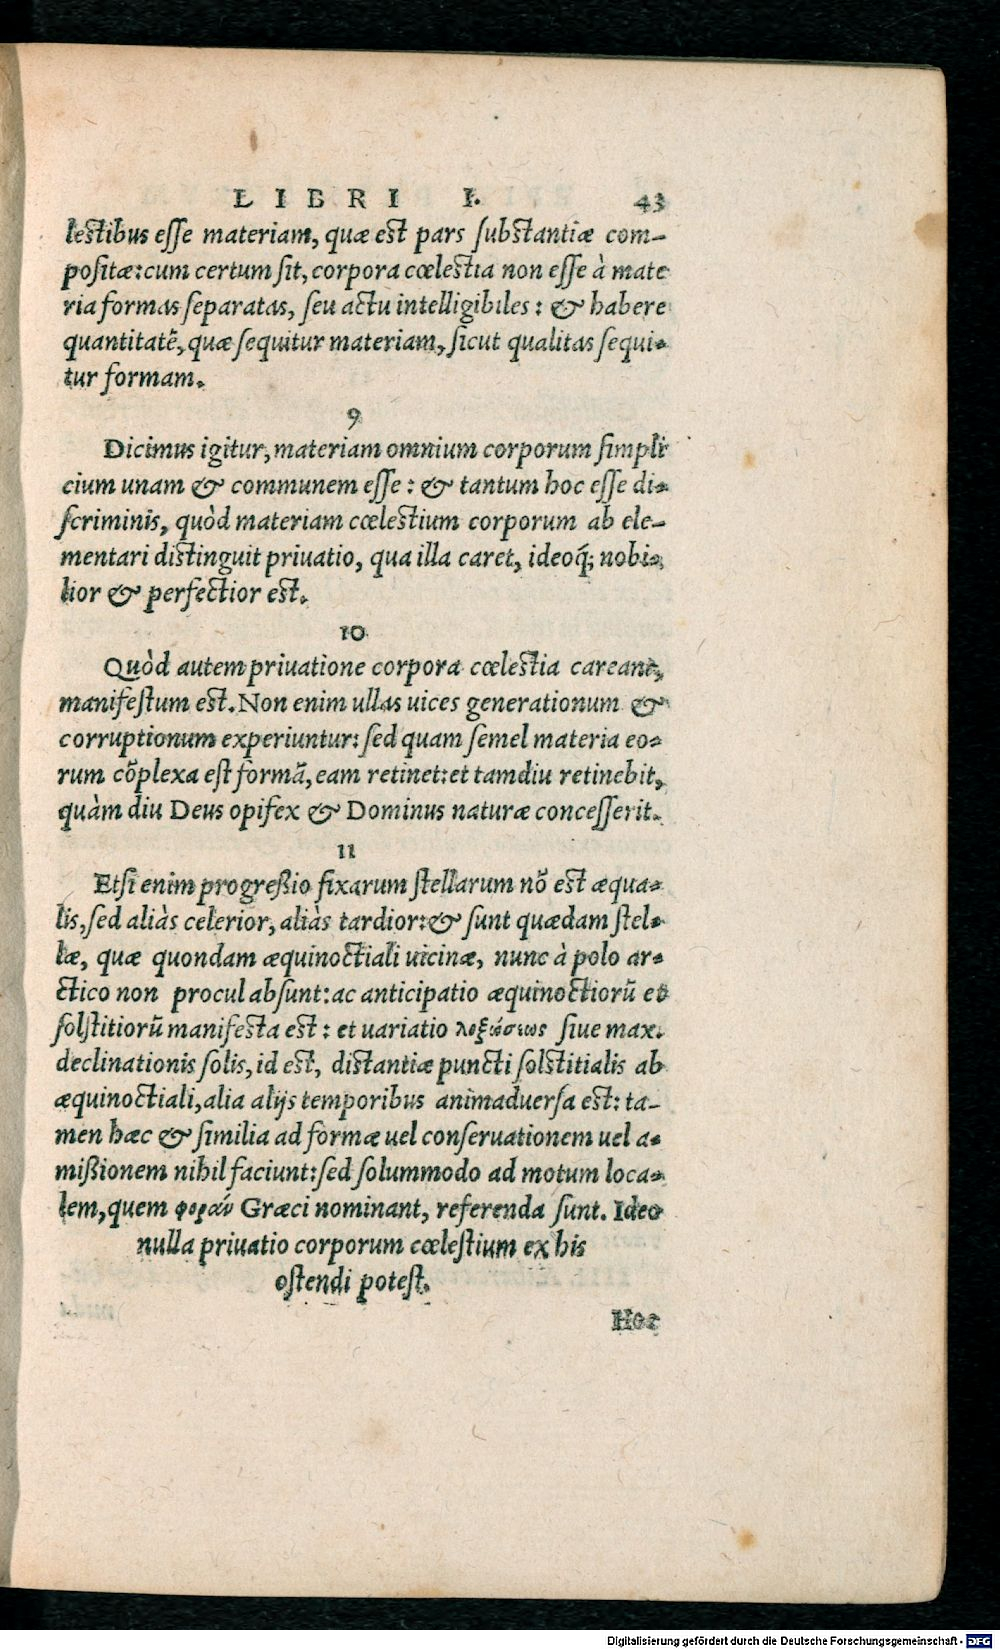 LIBRI I. 43
lestibus esse materiam, quæ est pars substantiæ com-
positæ: cum certum sit, corpora cœlestia non esse à mate
ria formas separatas, seu actu intelligibiles: & habere
quantitatẽ, quæ sequitur materiam, sicut qualitas sequi-
tur formam.
9
Dicimus igitur, materiam omnium corporum simpli
cium unam & communem esse: & tantum hoc esse di-
scriminis, quòd materiam cœlestium corporum ab ele-
mentari distinguit priuatio, qua illa caret, ideoq́; nobi-
lior & perfectior est.
10
Quòd autem priuatione corpora cœlestia careant,
manifestum est. Non enim ullas uices generationum &
corruptionum experiuntur: sed quam semel materia eo-
rum cõplexa est formã, eam retinet: et tamdiu retinebit,
quàm diu Deus opifex & Dominus naturæ concesserit.
11
Etsi enim progreßio fixarum stellarum nõ est æqua-
lis, sed aliàs celerior, aliàs tardior: & sunt quædam stel-
læ, quæ quondam æquinoctiali uicinæ, nunc à polo ar-
ctico non procul absunt: ac anticipatio æquinoctiorũ et
solstitiorũ manifesta est: et uariatio λοξώσεως siue max.
declinationis solis, id est, distantiæ puncti solstitialis ab
æquinoctiali, alia alijs temporibus animaduersa est: ta-
men hæc & similia ad formæ uel conseruationem uel a-
mißionem nihil faciunt: sed solummodo ad motum loca-
lem, quem φοράν Græci nominant, referenda sunt. Ideo
nulla priuatio corporum cœlestium ex his
ostendi potest.
Hoc
Digitalisierung gefördert durch die Deutsche Forschungsgemeinschaft - DFG